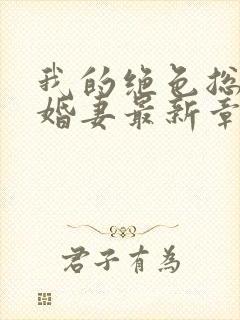 我的绝色总
婚妻最新章
君子有为